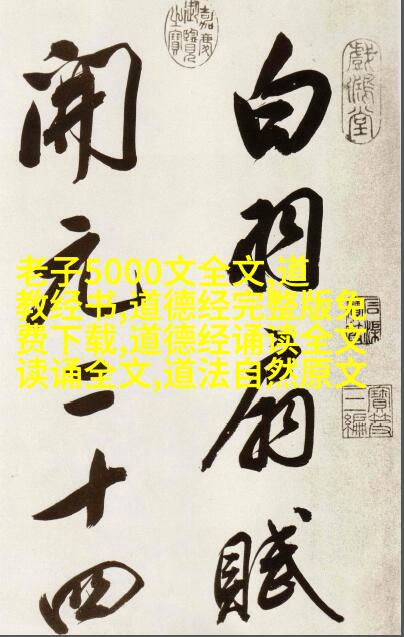 白羽扇賦
開元二十四
老子5000文全文,道
教经书,道德经完整版免
费下载,道德经诵读全文
读诵全文,道法自然原文
嘉慶御覽之寶
戲鴻堂
寶笈三編